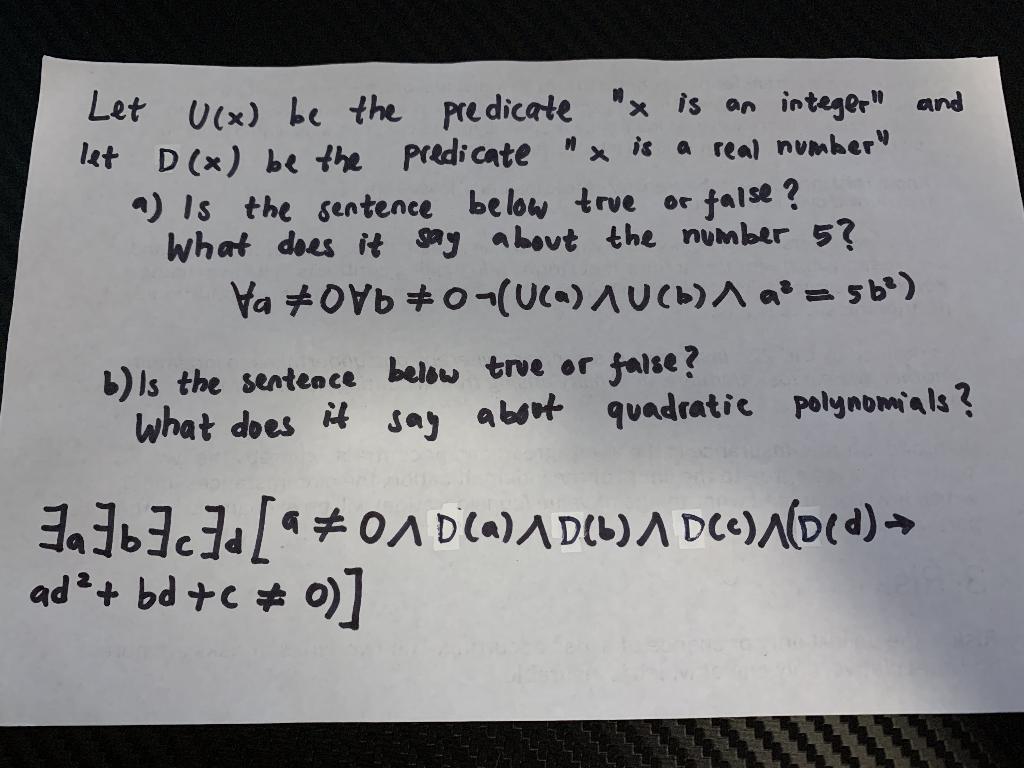 Let U(x) be the predicate "x is an integer" and
let D(x) be the predicate "x is a real number"
a) Is the sentence below true or false?
What does it say about the number 5?
∀a ≠ 0 ∀b ≠ 0 ¬(U(a) ∧ U(b) ∧ a² = 5b²)
b) Is the sentence below true or false?
What does it say about quadratic polynomials?
∃a∃b∃c∃d[a ≠ 0 ∧ D(a) ∧ D(b) ∧ D(c) ∧ (D(d) →
ad² + bd + c ≠ 0)]